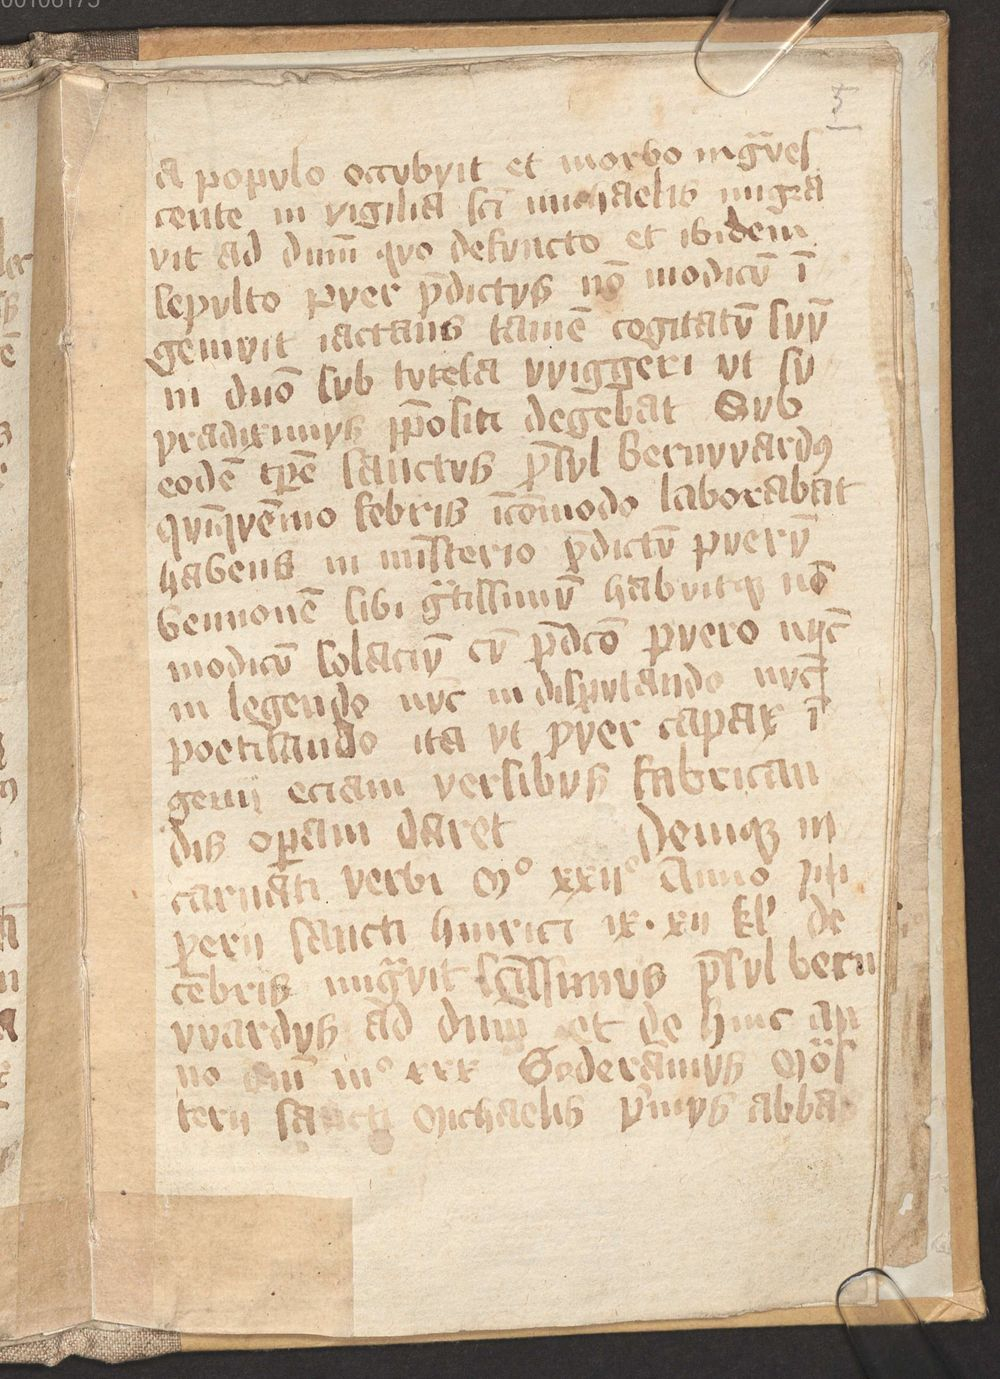 00106175
5
a popvlo occvbvit et morbo ingᵃvesſ
cente in vigilia sc̄i michaelis migra
vit ad dnm̄ qvo defvncto et ibidem
sepvlto pver p̄dictvs nō modicv̄ ī
gemvit iactans tamē cogitatv̄ svv̄
in dn̄o svb tvtela vviggeri vt sv
pradiximvs p̄positi degebat Svb
eodē tp̄e sanctvs p̄svl bernvvardꝯ
qvīqvēnio febris īcōmodo laborabat
habens in mīsterio p̄dictv̄ pverv̄
bennonē sibi gᵃtissimv̄ habvitqꝫ nō
modicv̄ solaciv̄ cv̄ p̄dcō pvero nvc̄
in legendo nvc̄ in dispvtando nvc̄
poetisando ita vt pver capax ī
genij eciam versibvs fabrican
dis op̄am daret Deniqꝫ in
carnati verbi Mᵒ xxijᵒ Anno im
perij sancti hinrici ix · xii kl' de
cēbris migᵃvit sc̄issimvs p̄svl bern
vvardvs ad dnm̄ et de hinc an
no dn̄i mᵒ xxx Goderamvs Mōs
terij sancti Michaelis pⁱmvs abbas